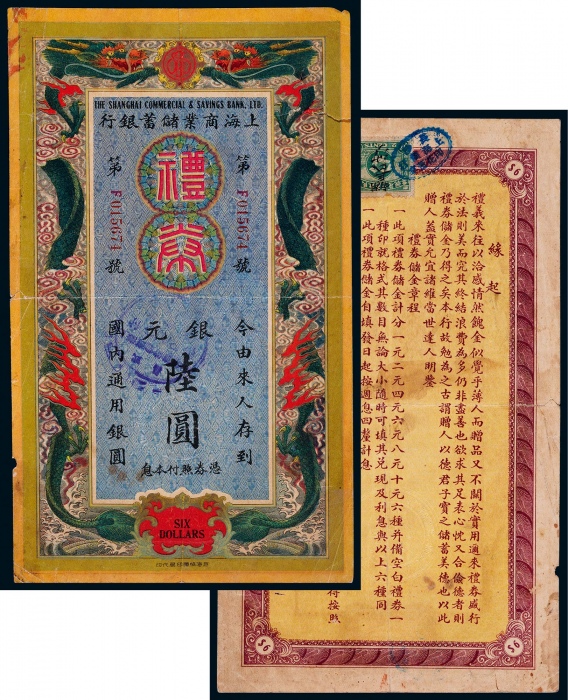 THE SHANGHAI COMMERCIAL & SAVINGS BANK, LTD.
上海商業儲蓄銀行
第 F015671 號
禮券
第 F015671 號
今由來人存到
銀元
陸圓
國內通用銀圓
憑券照付本息
SIX
DOLLARS
緣起
禮義來往以洽感情然餽金似覺乎薄人而贈品又不關於實用邇來禮券盛行
於法則美而完其終結浪費為多仍非盡善也欲求其足表心忱又合倫德者則
禮券儲金乃得之矣本行故勉為之古謂贈人以德君子寶之儲蓄美德也以此
贈人蓋實允宜諸維當世達人明鑒
禮券儲金章程
一此項禮券儲金計分一元二元四元六元八元十元六種并備空白禮券一
種印就格式其數目無論大小隨時可填其兌現及利息與以上六種同
一此項禮券儲金自填發日起按週息四釐計息
得按照
$6
$6
$6